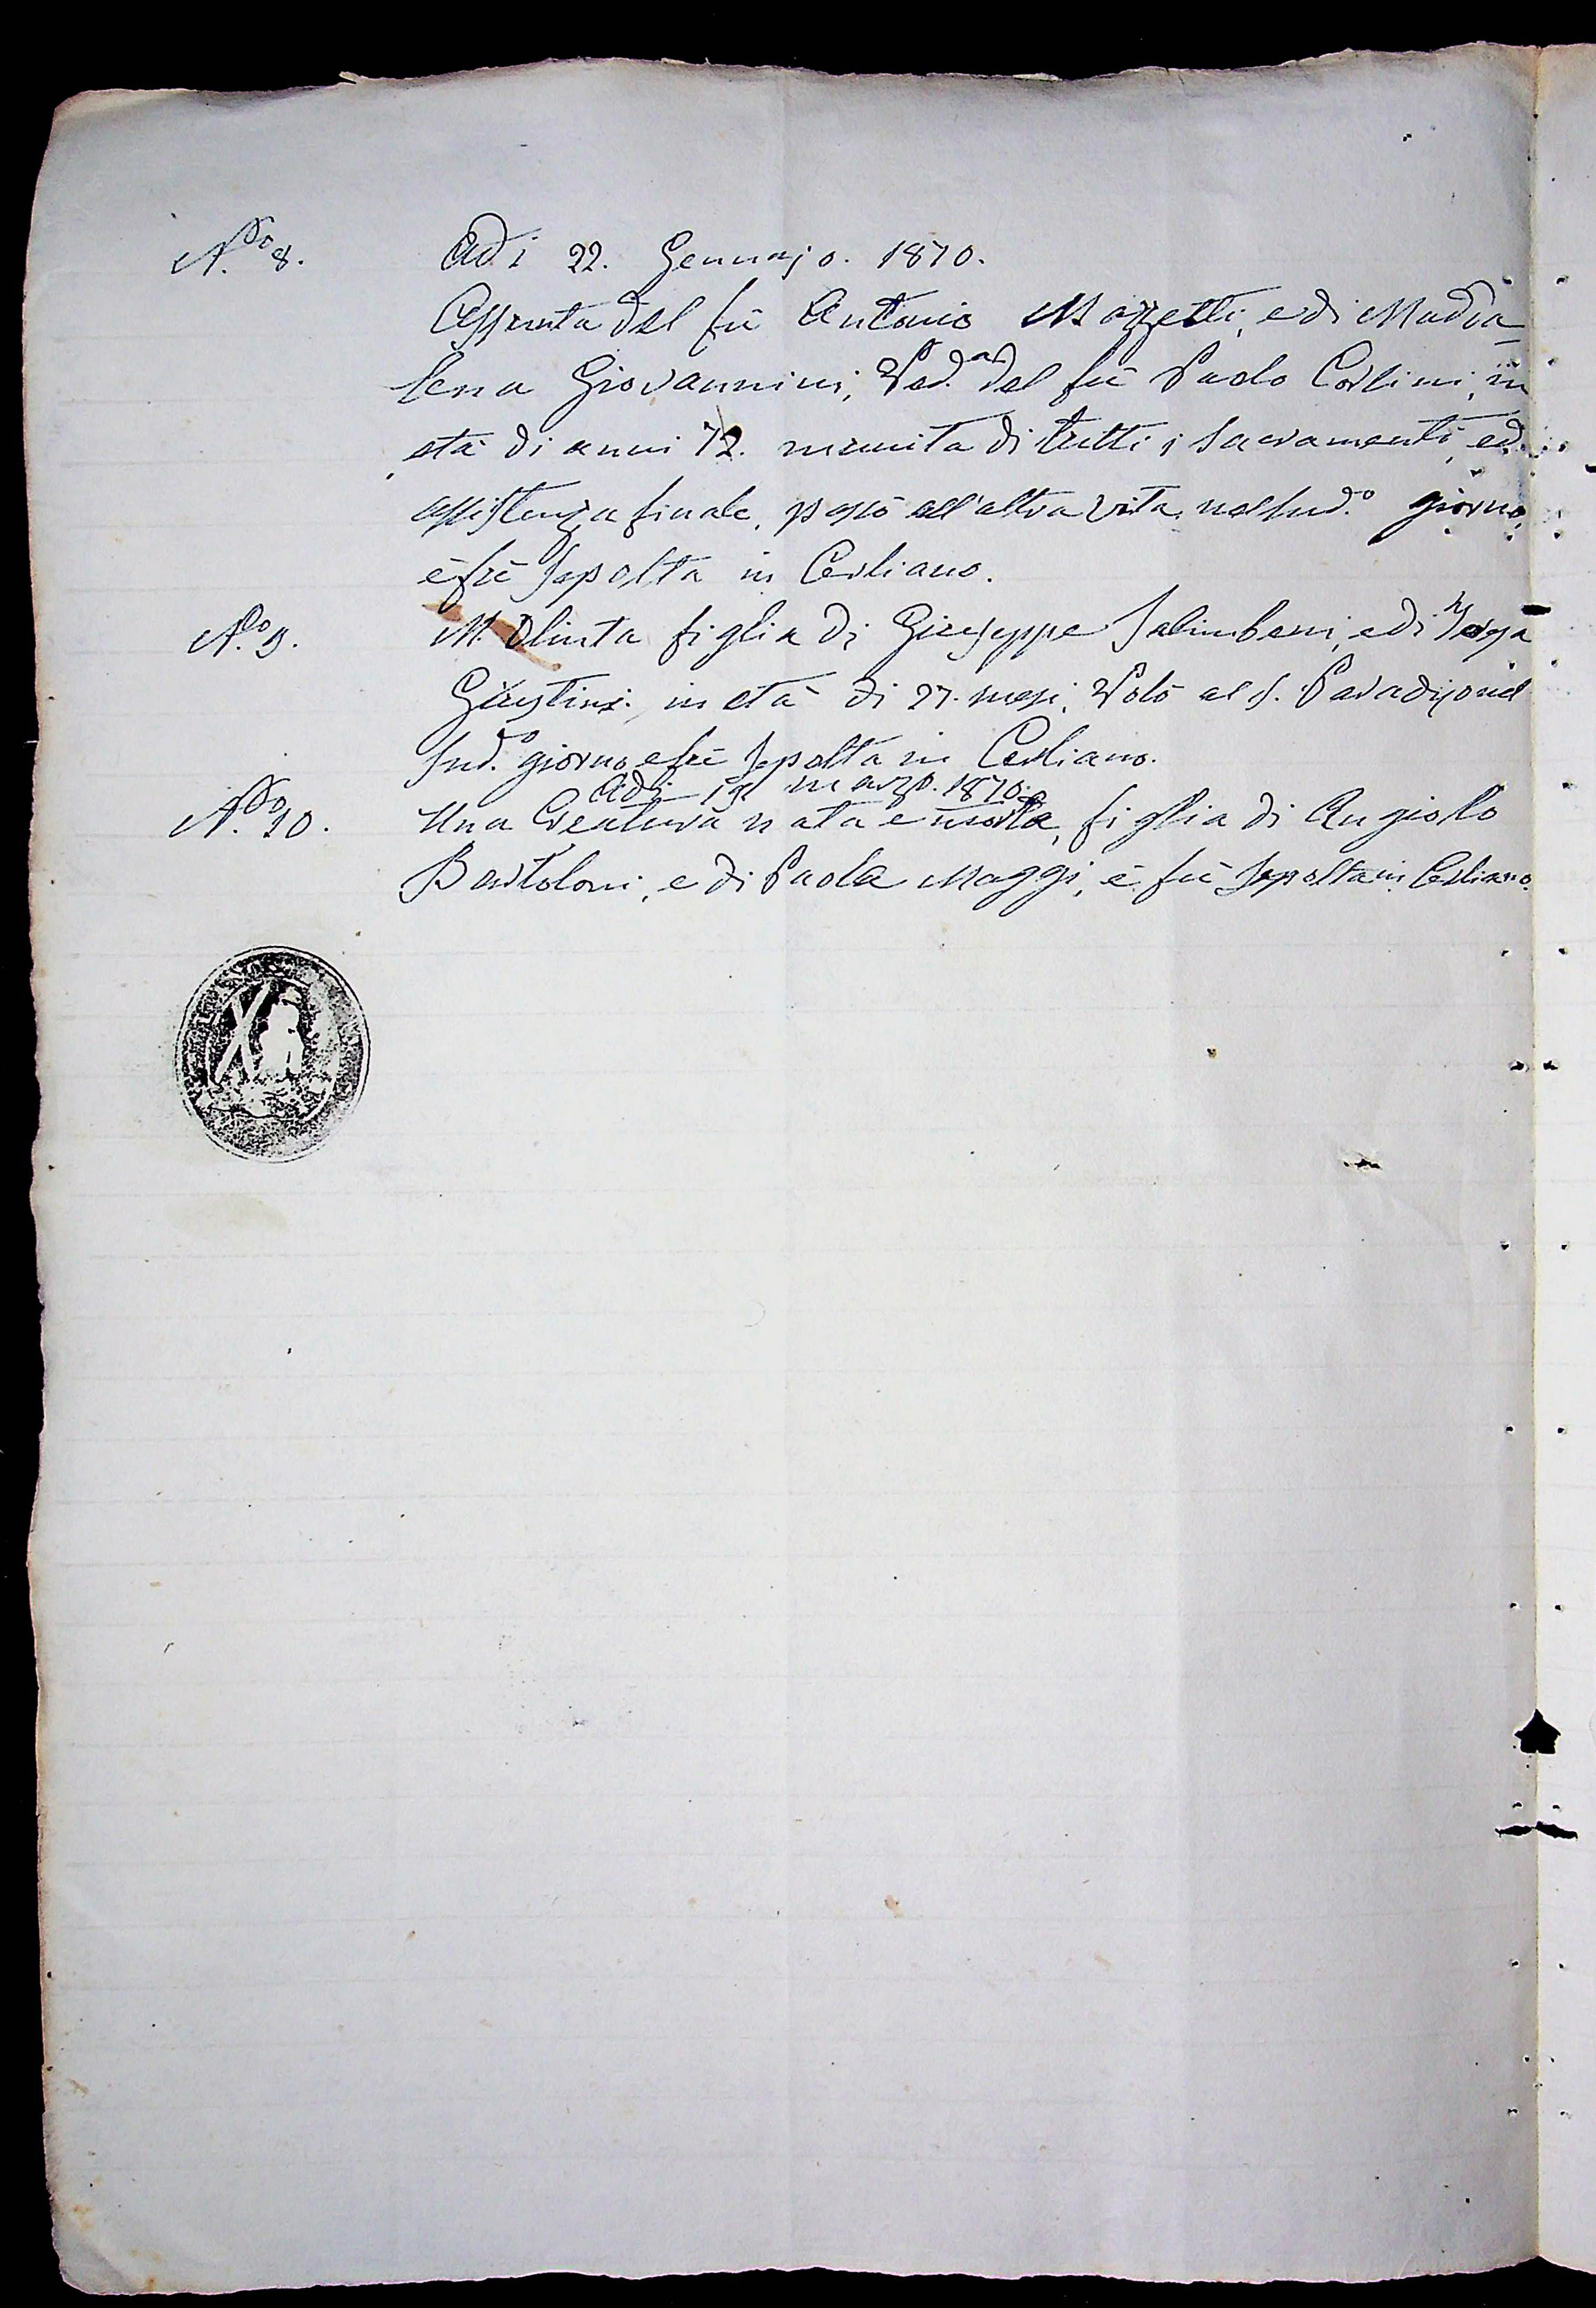 N.ro 8. Adi 22. Gennajo. 1870.
Assunta del fù Antonio Mazzetti, e di Madda=
lena Giovannini, Ved.a del fù Paolo Corsini, in
età di anni 72. munita di tutti i Sacramenti, ed
assistenza finale, passò all'altra vita, nel sud.o giorno,
è fù sepolta in Cerliano.
N.ro 9. M. Olinta figlia di Giuseppe Salimbeni, e di Teresa
Giustini. in età di 27. mesi, Volò al S. Paradiso nel
sud.o giorno, e fù sepolta in Cerliano.
Adi marzo. 1870.
N.ro 10. Una Creatura nata e morta, figlia di Angiolo
Bartoloni, e di Paola Maggi, è fù sepolta in Cerliano.